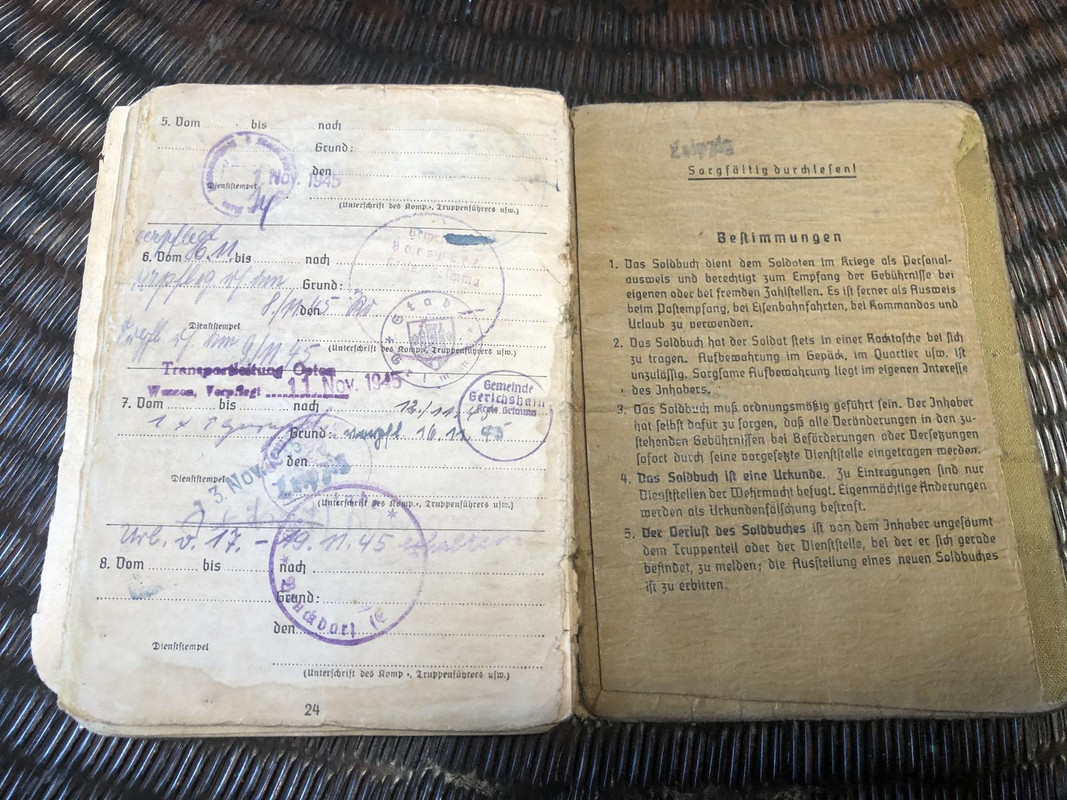 5. Vom bis nach
Grund:
den
1 Nov. 1945
Dienststempel
(Unterschrift des Komp.-, Truppenführers usw.)
verpflegt
6. Vom 6.11. bis nach
Grund:
8./11.45 den
Dienststempel
(Unterschrift des Komp.-, Truppenführers usw.)
9/11 45
Stadt
Transportleitung Osten
Wurzen, Verpflegt 11. Nov. 1945
Gemeinde
Gerichshain
Kreis Grimma
7. Vom bis nach
Grund: verpfl 16.11 45
den
3. Nov.
Leipzig
Dienststempel
(Unterschrift des Komp.-, Truppenführers usw.)
Url. v. 17. – 19.11.45 erhalten
8. Vom bis nach
Grund:
den
Dienststempel
(Unterschrift des Komp.-, Truppenführers usw.)
24
Leipzig
Sorgfältig durchlesen!
Bestimmungen
1. Das Soldbuch dient dem Soldaten im Kriege als Personal-
ausweis und berechtigt zum Empfang der Gebührnisse bei
eigenen oder bei fremden Zahlstellen. Es ist ferner als Ausweis
beim Postempfang, bei Eisenbahnfahrten, bei Kommandos und
Urlaub zu verwenden.
2. Das Soldbuch hat der Soldat stets in einer Rocktasche bei sich
zu tragen. Aufbewahrung im Gepäck, im Quartier usw. ist
unzulässig. Sorgsame Aufbewahrung liegt im eigenen Interesse
des Inhabers.
3. Das Soldbuch muß ordnungsmäßig geführt sein. Der Inhaber
hat selbst dafür zu sorgen, daß alle Veränderungen in den zu-
stehenden Gebührnissen bei Beförderungen oder Versetzungen
sofort durch seine vorgesetzte Dienststelle eingetragen werden.
4. Das Soldbuch ist eine Urkunde. Zu Eintragungen sind nur
Dienststellen der Wehrmacht befugt. Eigenmächtige Änderungen
werden als Urkundenfälschung bestraft.
5. Der Verlust des Soldbuches ist von dem Inhaber ungesäumt
dem Truppenteil oder der Dienststelle, bei der er sich gerade
befindet, zu melden; die Ausstellung eines neuen Soldbuches
ist zu erbitten.